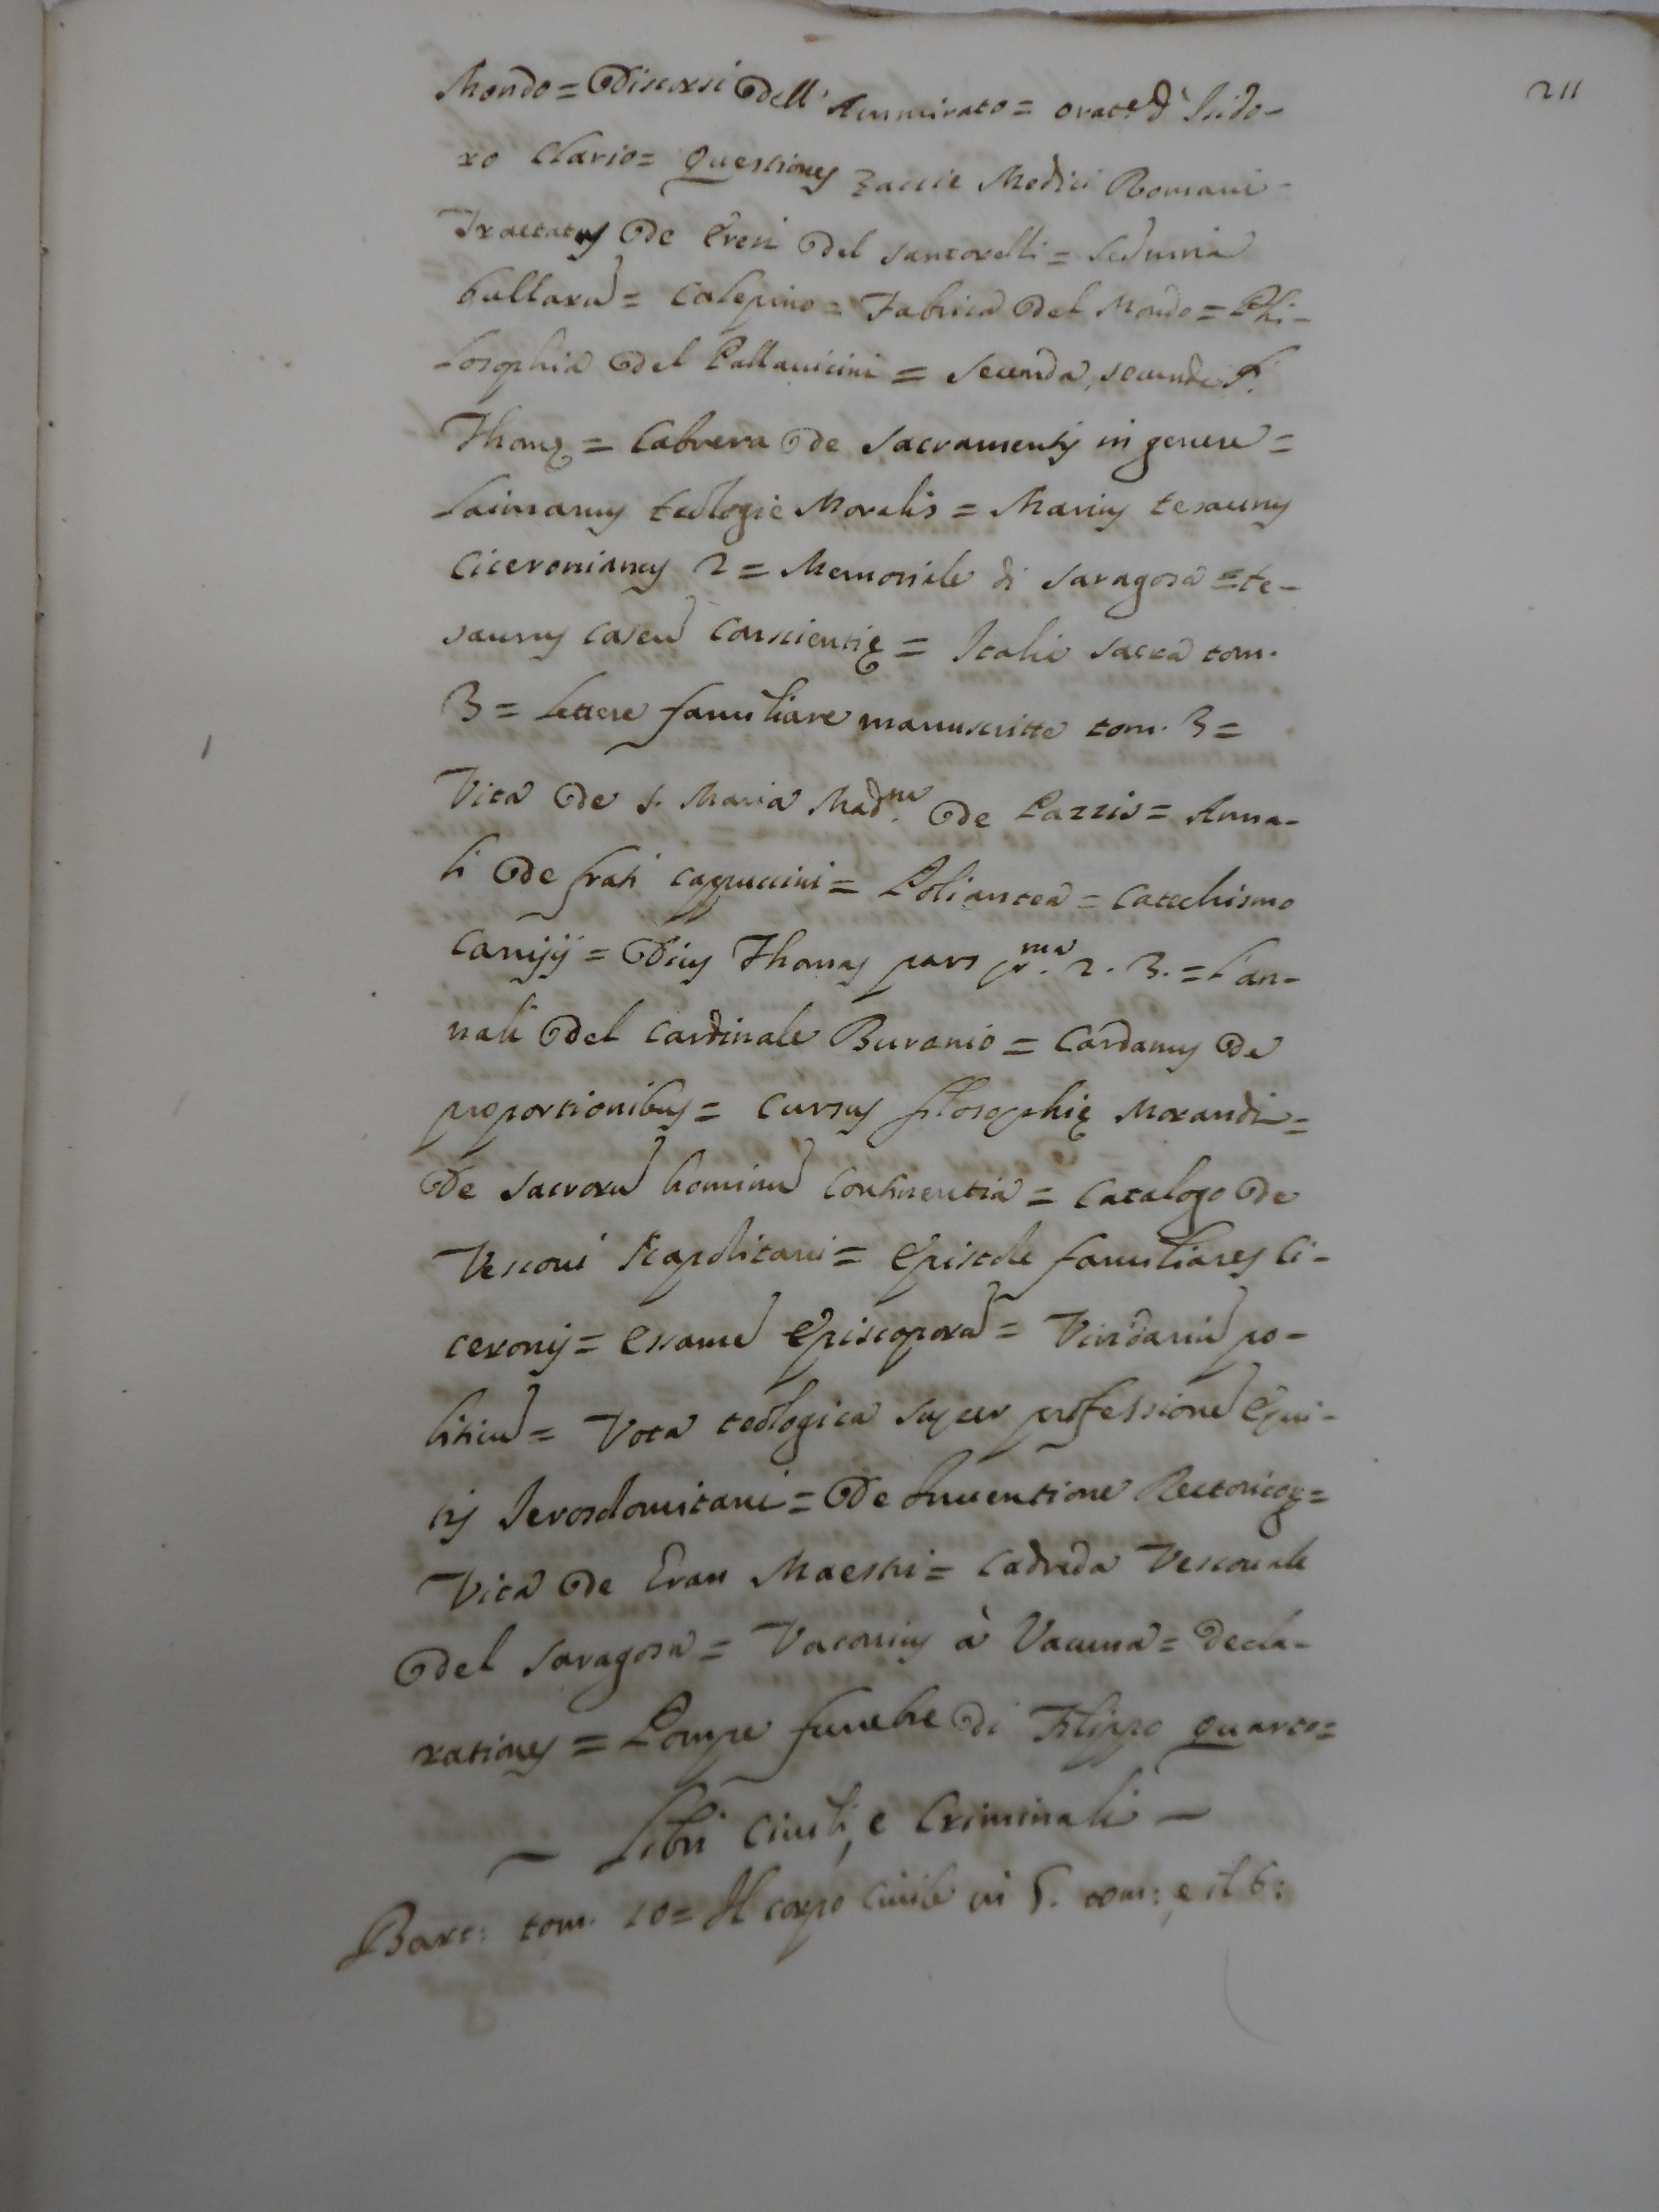 211
Mondo = Discorsi Dell' Ammirato = orat.e d' Isido-
ro Clario = Questiones Zaccie Medici Romani -
Tractatus De Eresi Del Santorelli =
bullarũ = Calepino = Fabrica Del Mondo = Phi-
-losophia Del Pallavicini = Secunda, secunde S.
Thomę = Cabrera De Sacramentis in genere =
Laimanus teologie Moralis = Marius tesaurus
Ciceronianus 2 = Memoriale di Saragosa = te-
saurus casuũ consientię = Italia sacra tom.
3 = Lettere familiare manuscritte tom. 3 =
Vita De S. Maria Mad.na De Pazzis = Anna-
li De frati cappuccini = Poliantea = Catechismo
Canisij = Dius Thomas pars pr.ma 2. 3. = L'an-
nali Del Cardinale Buronio = Cardanus De
proportionibus = Cursus filosophię Morandi =
De sacrorũ hominũ continentia = Catalogo De
Vescoui Napolitani = Epistole familiares Ci-
ceronis = Essamẽ Episcoporũ = Viridariũ po-
liticũ = Vota teologica super professionẽ Equi-
tis Ierosolomitani = De Inuentione Rectoricę =
Vita De Gran Maestri = Cadreda Vescouale
Del Saragosa = Vaconius à Vacuna = Decla-
rationes = Pompe funebre Di Filippo quarto =
- Libri Ciuili, e Criminali -
Bart: tom. 10 = Il corpo Ciuile in 5. tom: e il 6: